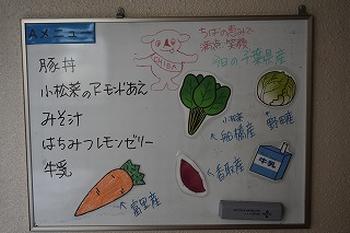 Aメニュー
豚丼
小松菜のアーモンドあえ
みそ汁
はちみつレモンゼリー
牛乳
ちばの恵みで
満点笑顔
今日の千葉県産
CHIBA
小松菜
船橋産
野田産
香取産
牛乳
富里産